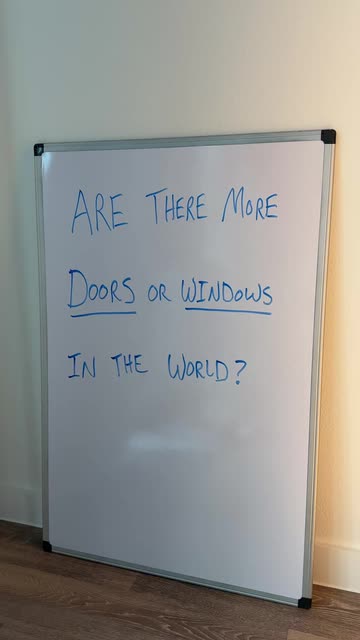 ARE THERE MORE
DOORS OR WINDOWS
IN THE WORLD?